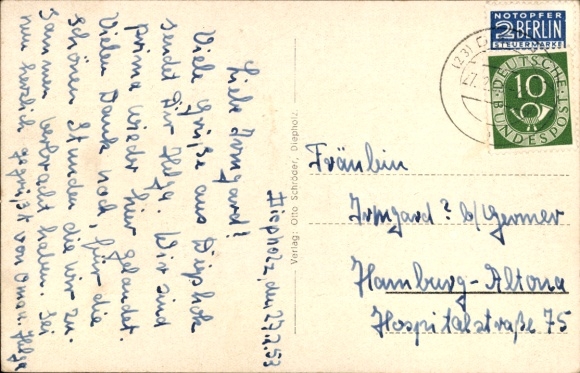 Diepholz, den 27.2.53
Liebe Irmgard!
Viele Grüße aus Diepholz
sendet Dir Helga. Wir sind
prima wieder hier gelandet.
Vielen Dank noch, für die
schönen Stunden die wir zu-
sammen verbracht haben. Sei
nun herzlich gegrüßt von Oma u. Helga
Verlag: Otto Schröder, Diepholz.
NOTOPFER
2 BERLIN
STEUERMARKE
(23)
DEUTSCHE
10
BUNDESPOST
Fräulein
Irmgard ? b/Germer
Hamburg-Altona
Hospitalstraße 75